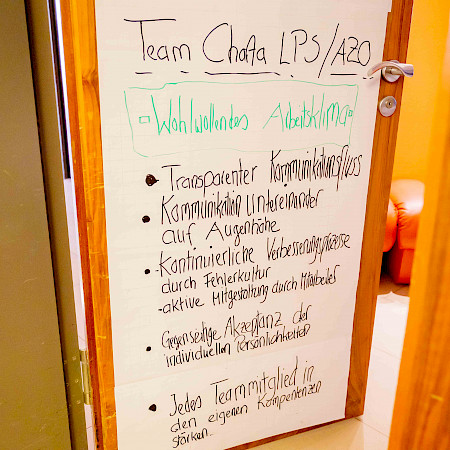 Team Charta LPS/AZO
Wohlwollendes Arbeitsklima
• Transparenter Kommunikationsfluss
• Kommunikation untereinander
auf Augenhöhe
• Kontinuierliche Verbesserungsprozesse
durch Fehlerkultur
- aktive Mitgestaltung durch Mitarbeiter
• Gegenseitige Akzeptanz der
individuellen Persönlichkeiten
• Jedes Teammitglied in
den eigenen Kompetenzen
stärken..